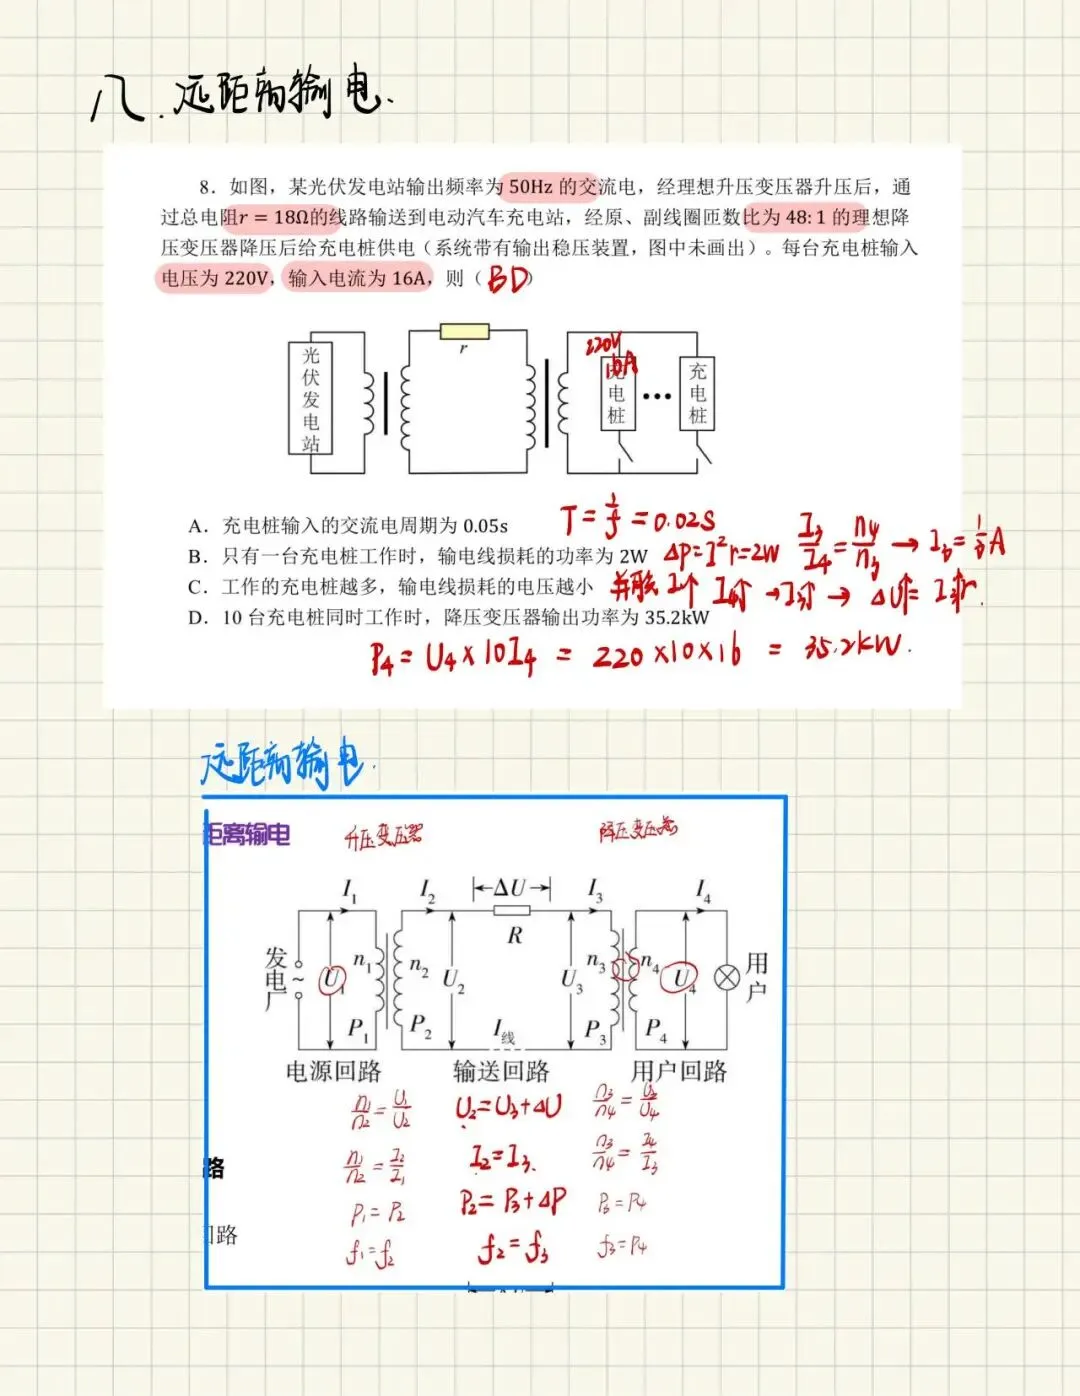 八.远距离输电.
8．如图，某光伏发电站输出频率为 50Hz 的交流电，经理想升压变压器升压后，通
过总电阻r = 18Ω的线路输送到电动汽车充电站，经原、副线圈匝数比为 48: 1 的理想降
压变压器降压后给充电桩供电（系统带有输出稳压装置，图中未画出）。每台充电桩输入
电压为 220V，输入电流为 16A，则（ BD ）
r
光伏发电站
220V
16A
充电桩
•••
充电桩
A．充电桩输入的交流电周期为 0.05s T=1/f=0.02S
B．只有一台充电桩工作时，输电线损耗的功率为 2W ΔP=I²r=2W I₃/I₄=n₄/n₃ →
C．工作的充电桩越多，输电线损耗的电压越小 并联 I₄个 → I₃个 →
D．10 台充电桩同时工作时，降压变压器输出功率为 35.2kW
P₄= U₄×10I₄ = 220×10×16 = 35.2KW.
远距离输电.
距离输电 升压变压器 降压变压器
I₁ I₂ ΔU I₃ I₄
R
发电厂 ~ U₁ n₁ n₂ U₂ U₃ n₃ n₄ U₄ 用户
P₁ P₂ I线 P₃ P₄
电源回路 输送回路 用户回路
n₁/n₂=U₁/U₂ U₂=U₃+ΔU n₃/n₄=U₃/U₄
路 n₁/n₂=I₂/I₁ I₂=I₃. n₃/n₄=I₄/I₃
P₁=P₂ P₂=P₃+ΔP P₃=P₄
回路 f₁=f₂ f₂=f₃ f₃=P₄